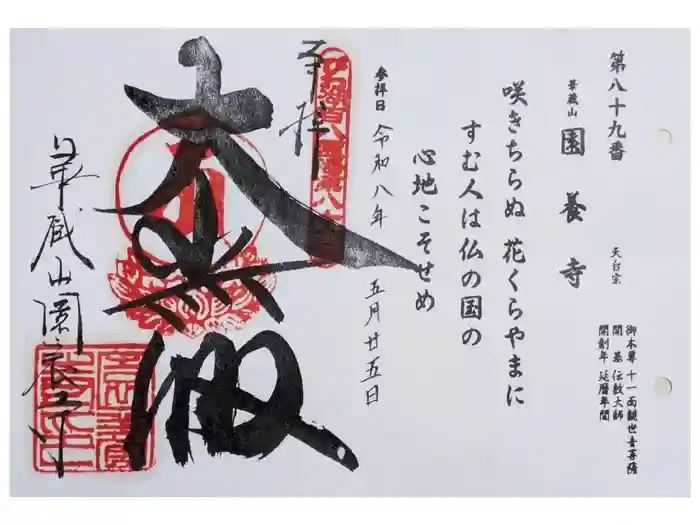 第八十九番
華蔵山
園養寺
天台宗
御本尊 十一面観世音菩薩
開基 伝教大師
開創年 延暦年間
咲きちらぬ 花くらやまに
すむ人は仏の国の
心地こそせめ
参拝日 令和八年 五月廿五日
奉拝
大悲殿
華蔵山園養寺